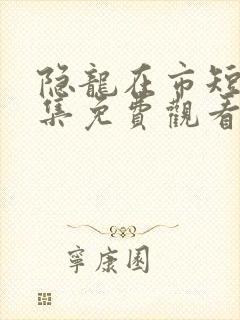 隐龍在市短
集免費觀看
寧康園